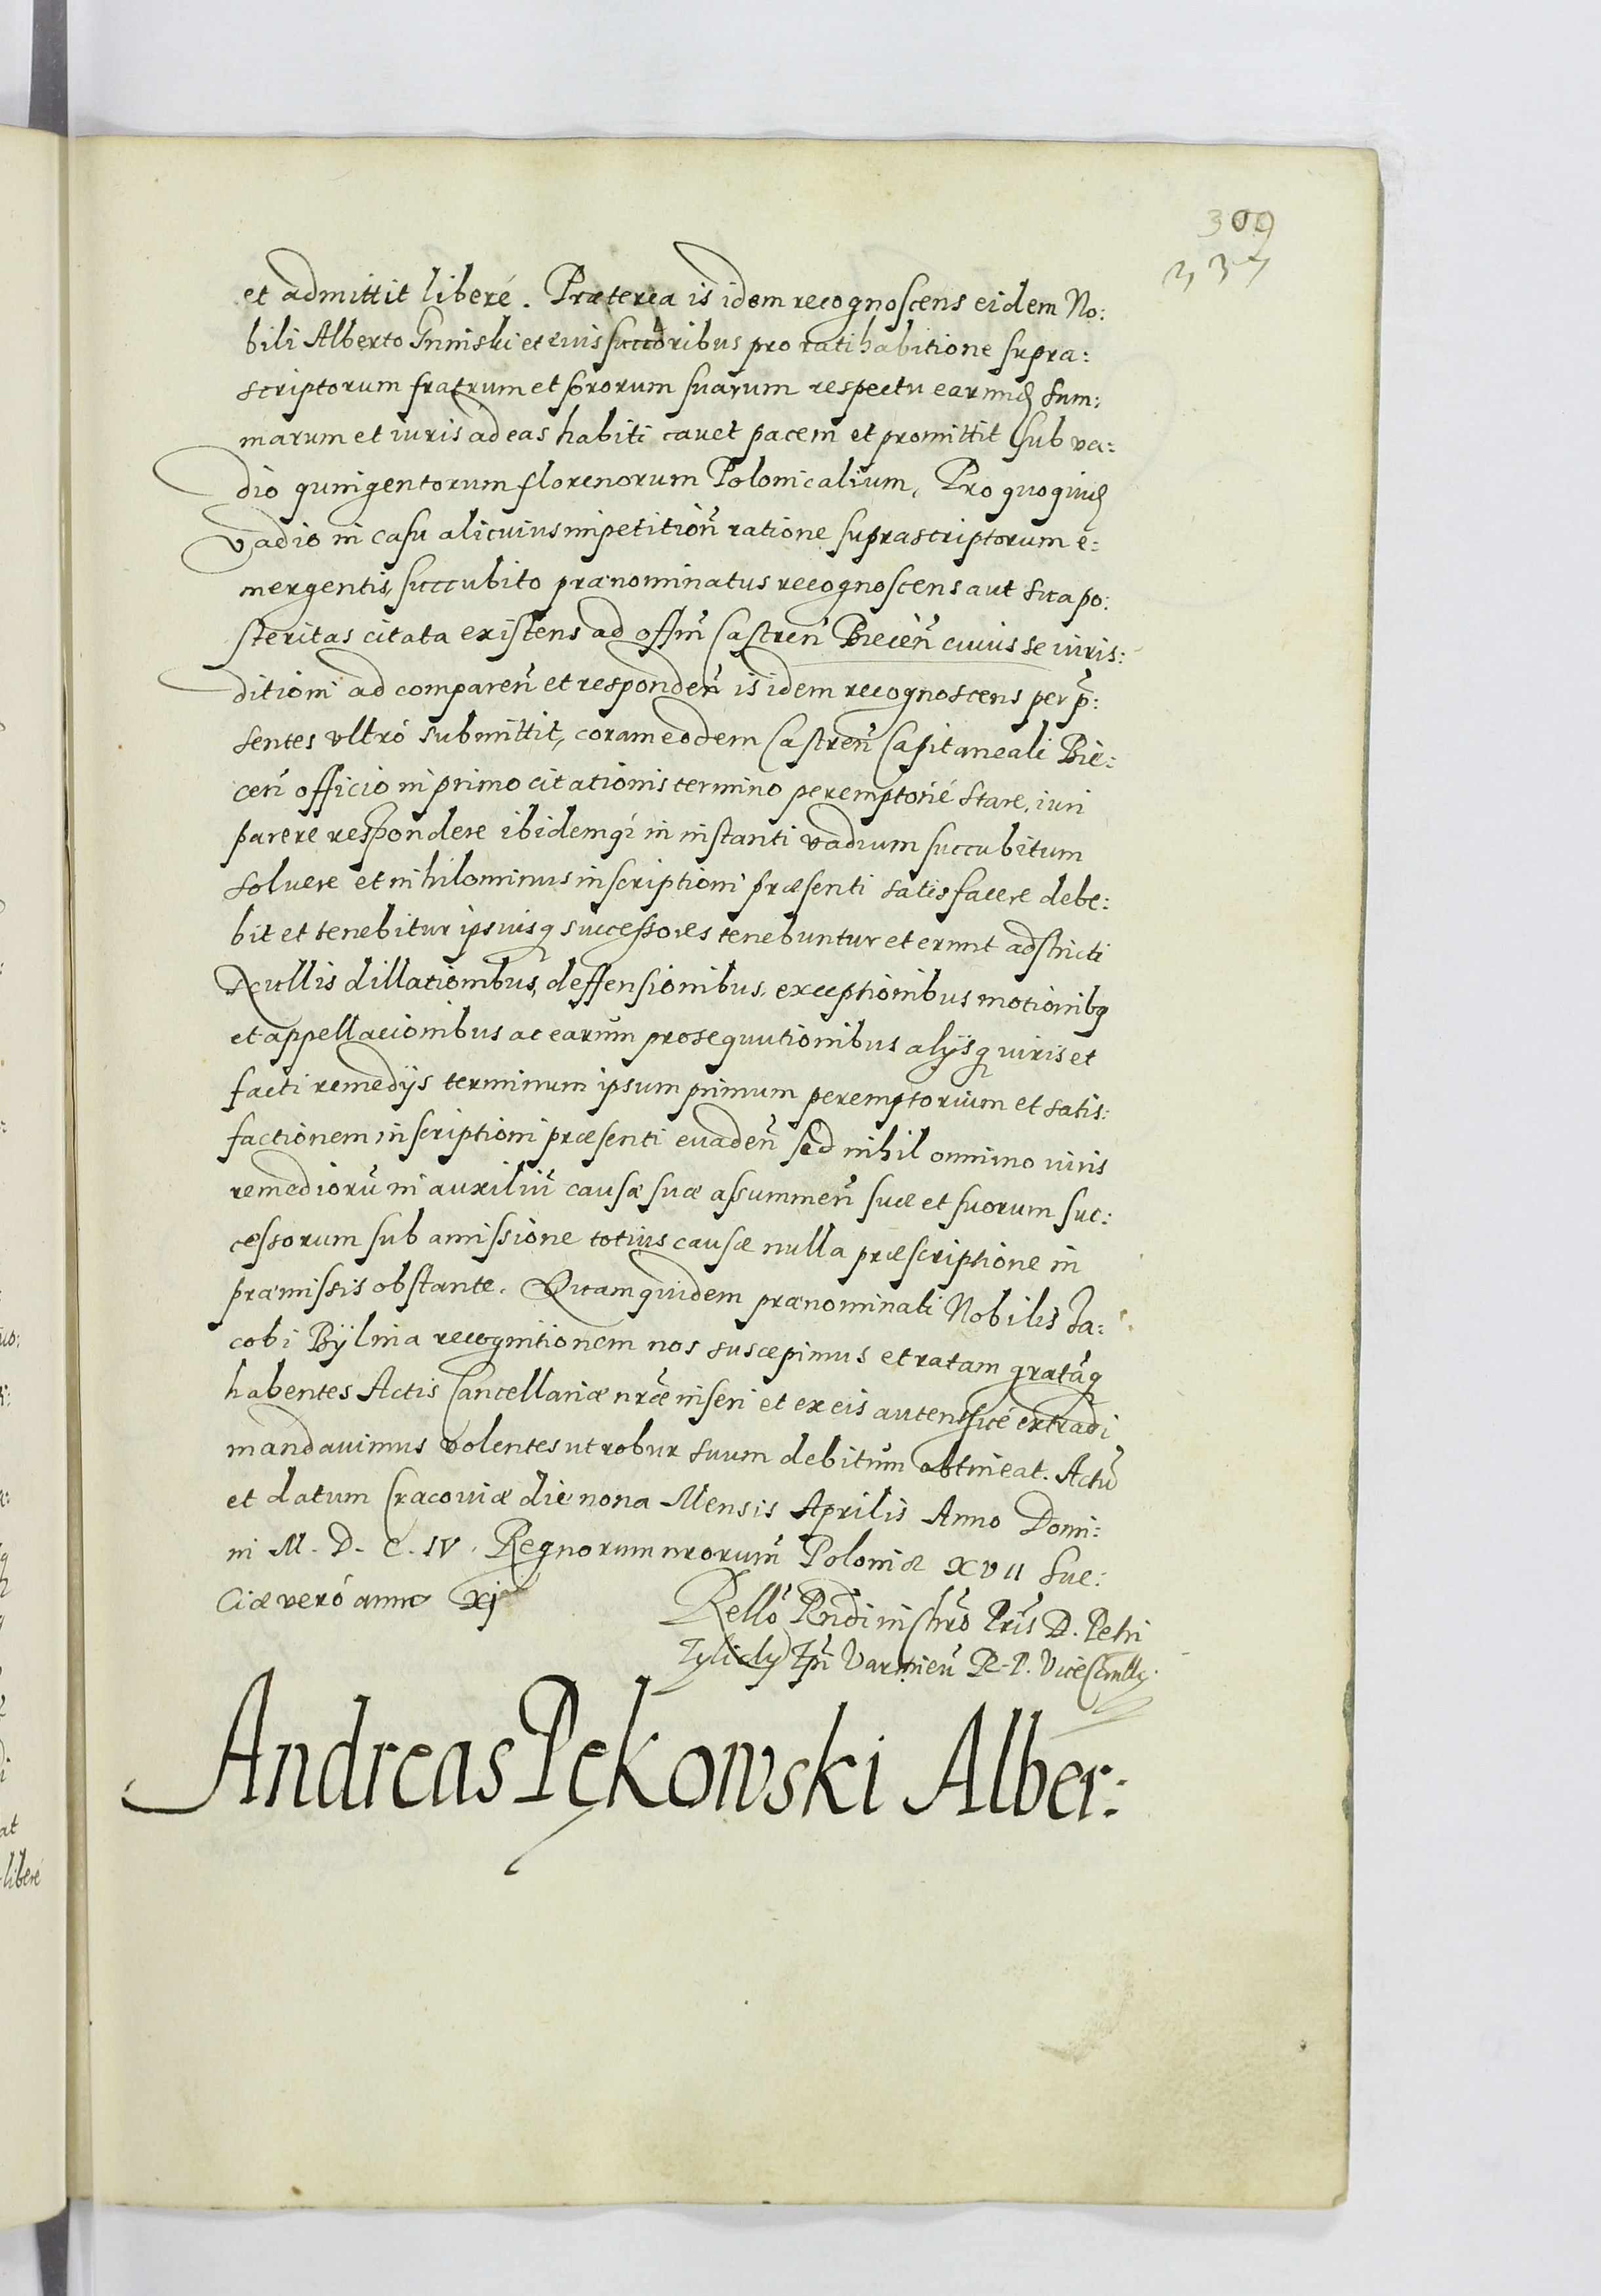 309
337
et admittit liberé. Præterea is idem recognoscens eidem No:
bili Alberto et eius succoribus pro ratihabitione supra:
scriptorum fratrum et sororum suarum respectu earund sum:
marum et iuris ad eas habiti cavet pacem et promittit sub va:
dio quingentorum florenorum Polonicalium, Pro quoquid
vadio in casu alicuius impetition̄ ratione suprascriptorum e:
mergentis, succubito prænominatus recognoscens aut sua po:
steritas citata existens ad offm̄ Castren̄ Biecen̄ cuius se iuris:
dictioni ad comparen̄ et responden̄ is idem recognoscens per p̄:
sentes ultró submittit, coram eodem Castren̄ Capitaneali Bie:
cen̄ officio in primo citationis termino peremptorié stare, iuri
parere respondere ibidemq́ in instanti vadium succubitum
soluere et nihilominus inscriptioni præsenti satisfacere debe:
bit et tenebitur ipsiusq successores tenebuntur et erunt adstricti
Nullis dillationibus, deffensionibus, exceptionibus motionibq
et appellacionibus ac earum prosequutionibus alijsq iuris et
facti remedijs terminum ipsum primum peremptorium et satis:
factionem inscriptioni præsenti evaden̄ sed nihil omnino iuris
remediorū in auxiliū causæ suæ assummen̄ suæ et suorum suc:
cessorum sub amissione totius causæ nulla præscriptione in
præmissis obstante. Quam quidem prænominati Nobilis Ja:
cobi Bÿlina recognitionem nos suscepimus et ratam gratāq
habentes Actis Cancellariæ nr̄æ inseri et ex eis autenticé extradi
mandauimus volentes ut robur suum debitum obtineat. Actū
et datum Cracouiæ die nona Mensis Aprilis Anno Domi:
ni M. D. C. IV. Regnorum nrorum Poloniæ XVII Sue:
ciæ veró anno XI
Rello Rndi in Chro Pris D. Petri
Tylicky Epi Varmien̄ R. P. ViceCancllr.
Andreas Pękowski Alber: